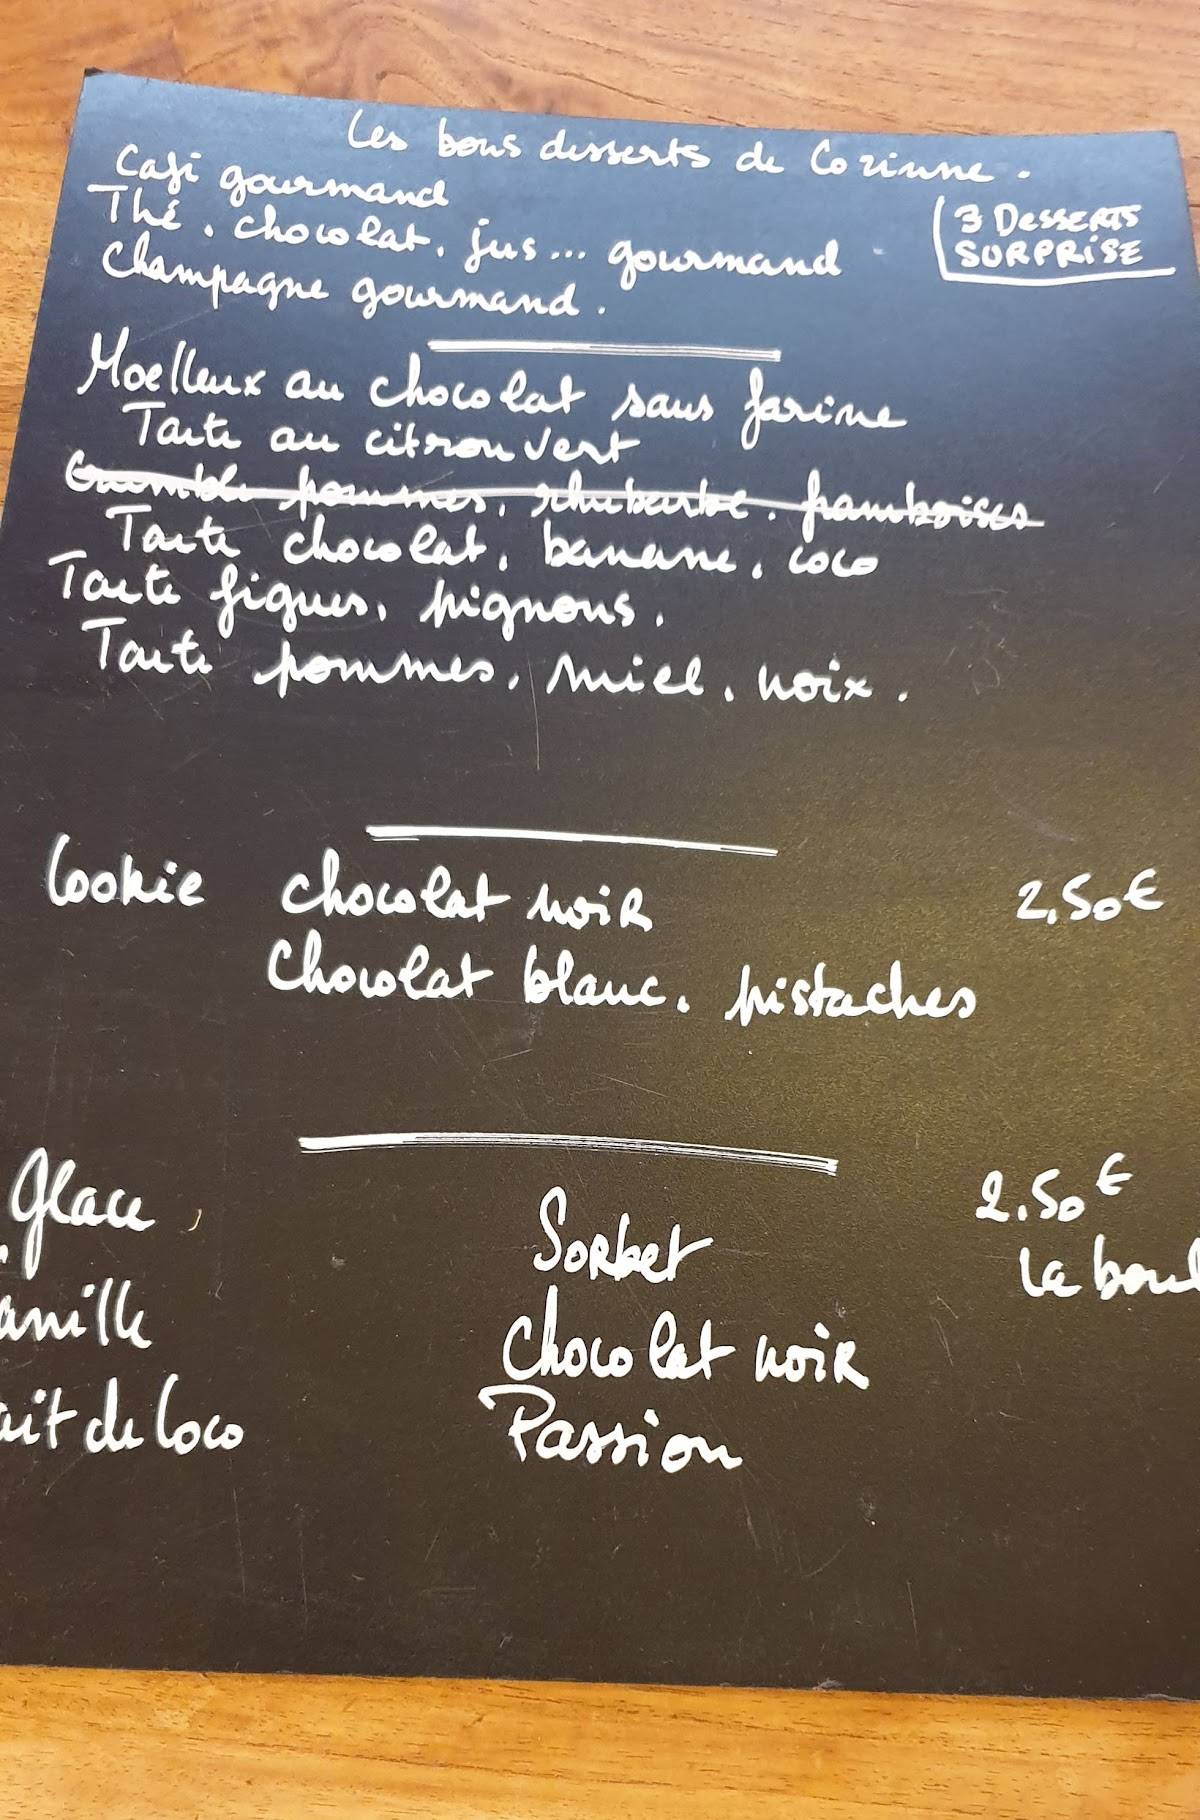 Les bons desserts de Corinne.
Café gourmand
Thé, chocolat, jus... gourmand
Champagne gourmand.
3 DESSERTS
SURPRISE
Moelleux au chocolat sans farine
Tarte au citron vert
Crumble pommes, rhubarbe, framboises
Tarte chocolat, banane, coco
Tarte figues, pignons.
Tarte pommes, miel, noix.
Cookie chocolat noir 2,50€
Chocolat blanc, pistaches
Glace Sorbet 2,50€
la boul
anille Chocolat noir
ait de Coco Passion